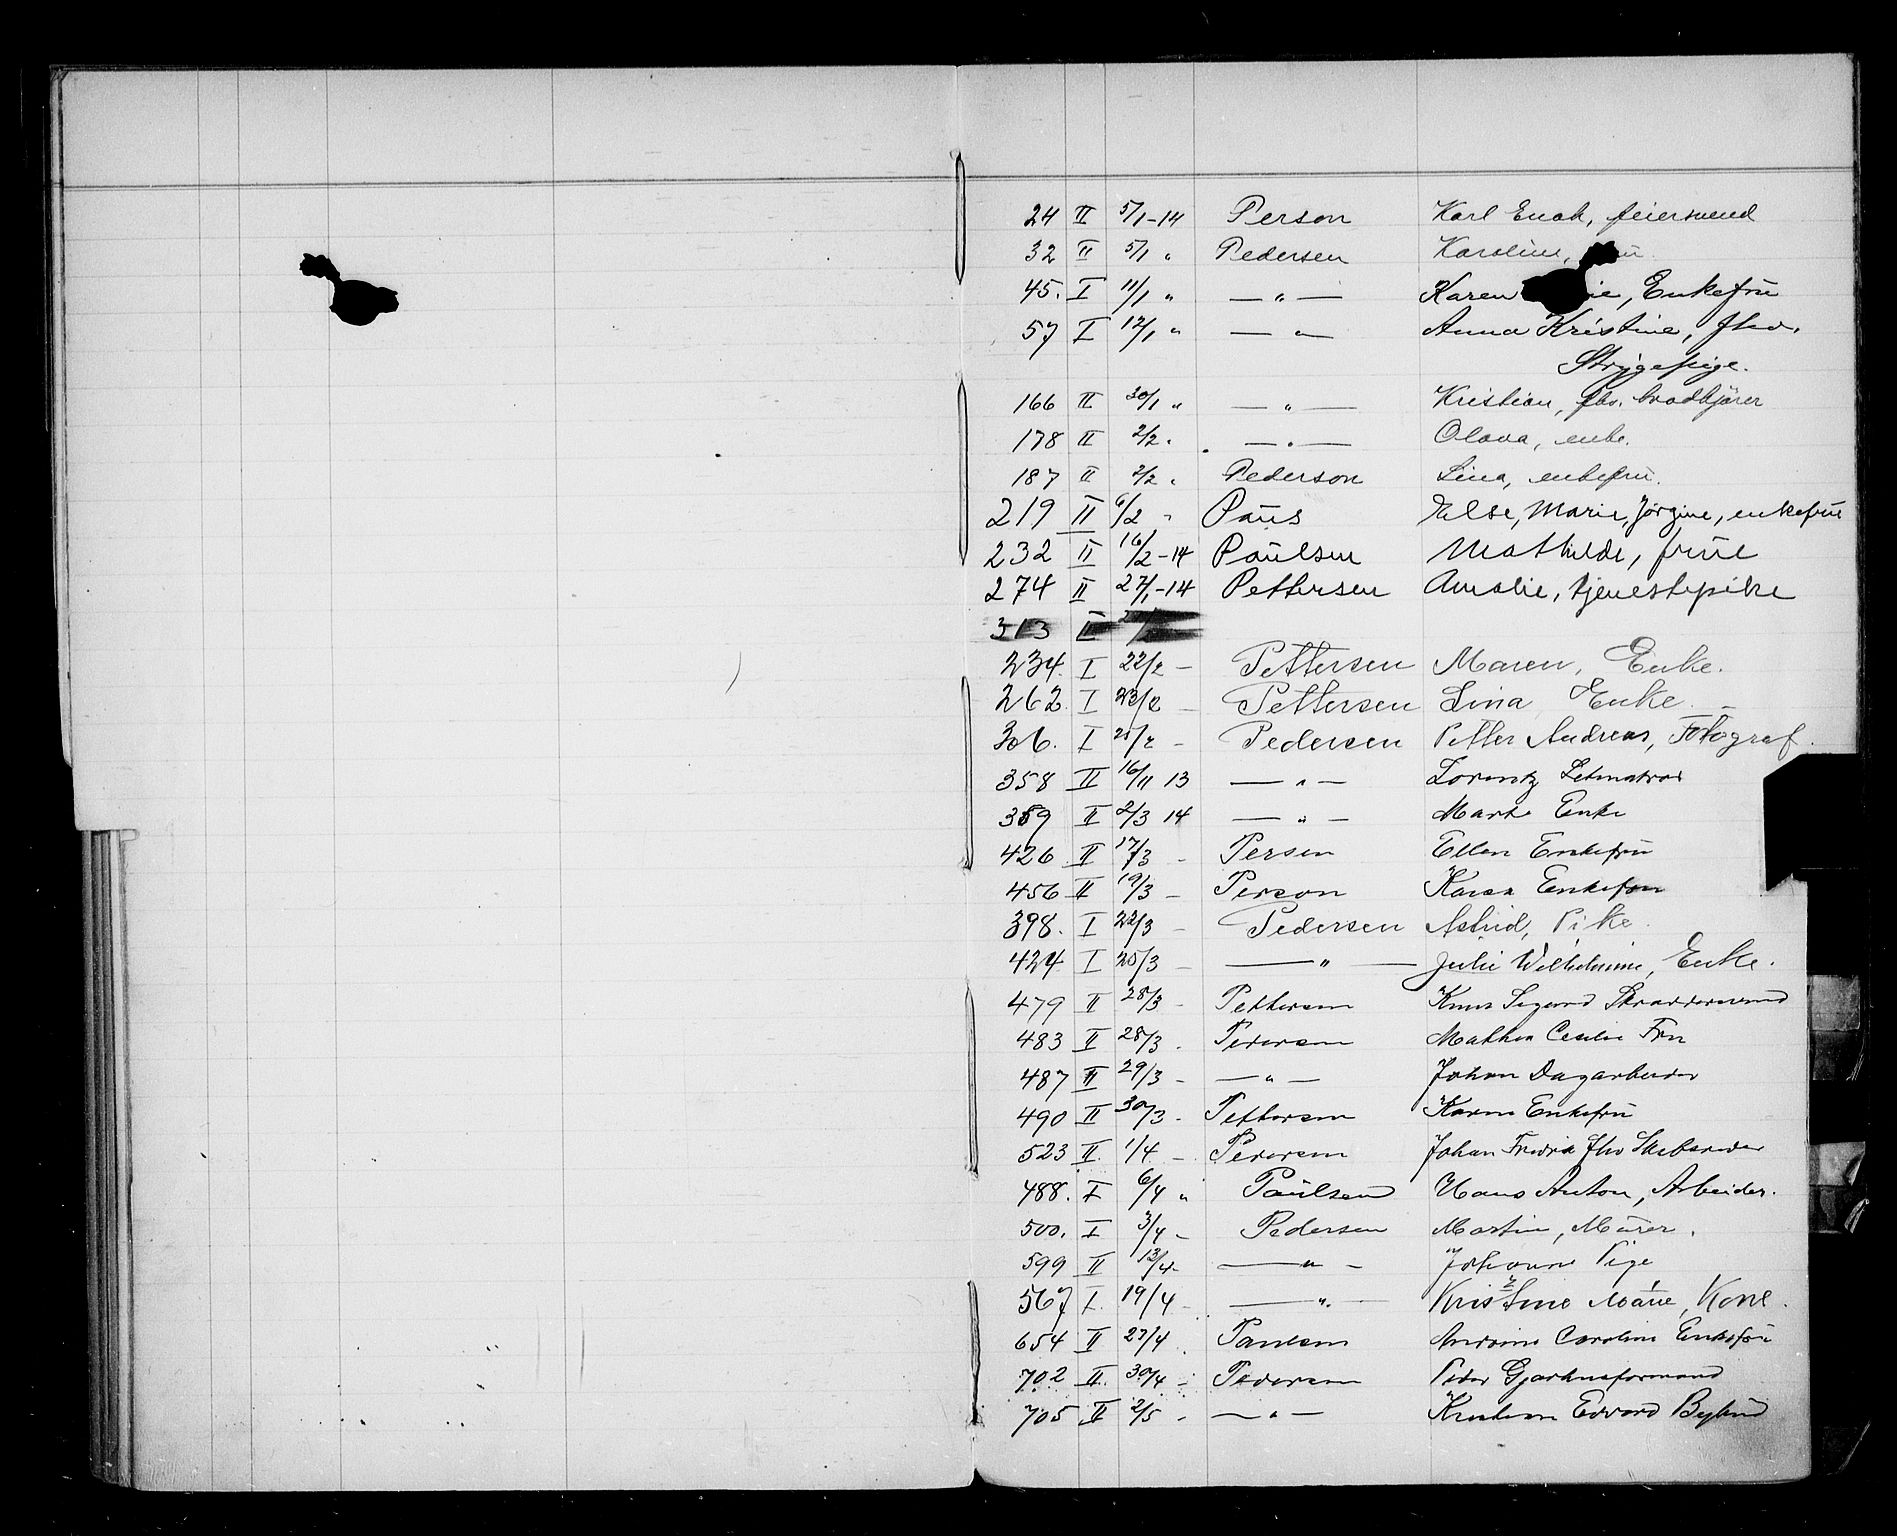 24 II 5/1-14 Person Karl Enok, feiersvend
32 II 5/1 " Pedersen Karoline,
45. I 11/1 " — " — Karen Enkefru
57 I 12/1 " — " — Anna Kristine, fhv.
Strygepige.
166 II 30/1 " — " — Kristian, fhv.
178 II 2/2 " — " — Olava, enke.
187 II 2/2 " Pederson Lina, enkefru.
219 II 6/2 " Paus Else, Marie, Jørgine, enkefrue
232 II 16/2-14 Paulsen Mathilde, frue
274 II 27/1-14 Pettersen Amalie, tjenestepike
313 II
234. I 22/2 - Pettersen Maren, Enke.
262. I 23/2 - Pettersen Lina Enke.
306. I 25/2 - Pedersen Petter Andreas, Fotograf.
358 II 16/11 13 — " — Lorentz
359 II 2/3 14 — " — Marte Enke
426 II 17/3 - Persen Ellen Enkefru
456 II 19/3 - Person Karen Enkefru
398. I 22/3 - Pedersen Astrid, Pike.
424 I 25/3 - — " — Julie Wilhelmine, Enke.
479 II 28/3 - Pettersen Sigurd Skræddersvend
483 II 28/3 - Pedersen Mathea Cecilie Fru
487 II 29/3 - — " — Johan Dagarbeider
490 II 30/3 - Pettersen Karen Enkefru
523 II 1/4 - Pedersen Johan Fredrik fhv Skibsreder
488. I 6/4 " Paulsen Hans Anton, Arbeider.
500. I 3/4 - Pedersen Martin, Murer.
599 II 13/4- — " — Johanne Pige
567 I. 19/4 - — " — Kristine Marie, Kone.
654 II 27/4 Paulsen Caroline Enkefru
702 II 30/4 - Pedersen Peder
705 II 2/5 - — " — Kristian Edvard Bybud